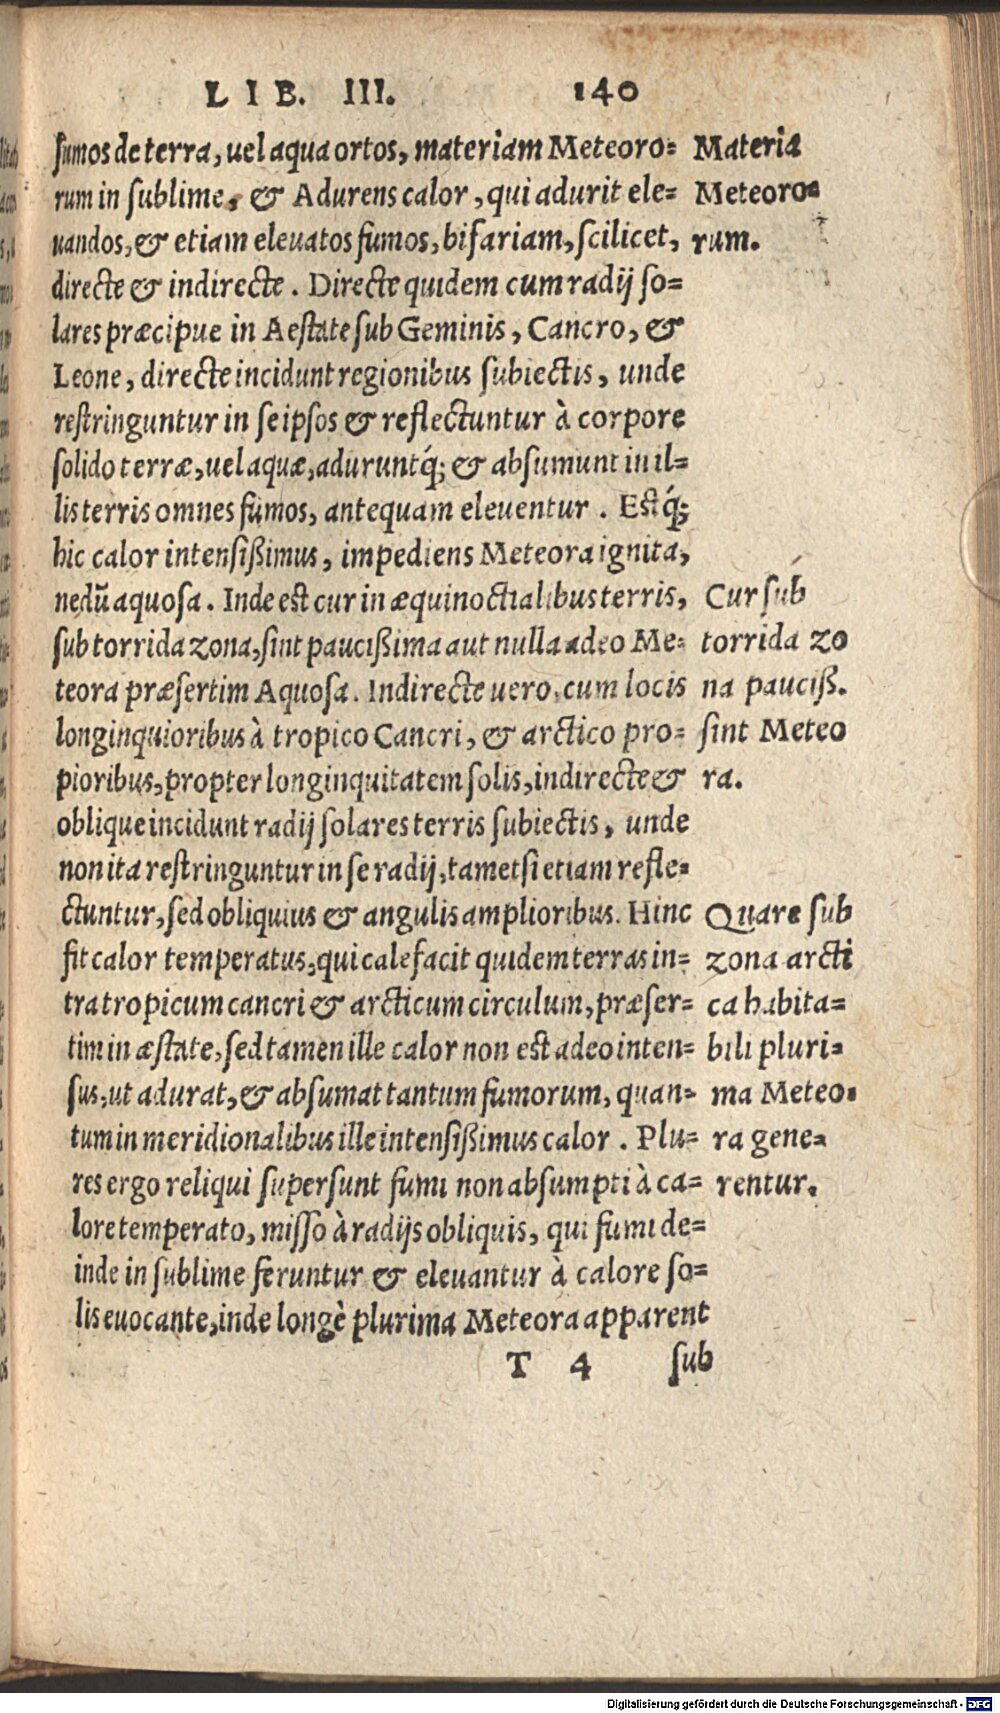 LIB. III. 140
fumos de terra, uel aqua ortos, materiam Meteoro-
rum in sublime, & Adurens calor, qui adurit ele-
uandos, & etiam eleuatos fumos, bifariam, scilicet,
directe & indirecte. Directe quidem cum radij so-
lares præcipue in Aestate sub Geminis, Cancro, &
Leone, directe incidunt regionibus subiectis, unde
restringuntur in seipsos & reflectuntur à corpore
solido terræ, uel aquæ, aduruntq́; & absumunt in il-
lis terris omnes fumos, antequam eleuentur. Estq́;
hic calor intensißimus, impediens Meteora ignita,
nedū aquosa. Inde est cur in æquinoctialibus terris,
sub torrida zona, sint paucißima aut nulla adeo Me-
teora præsertim Aquosa. Indirecte uero, cum locis
longinquioribus à tropico Cancri, & arctico pro-
pioribus, propter longinquitatem solis, indirecte &
oblique incidunt radij solares terris subiectis, unde
non ita restringuntur in se radij, tametsi etiam refle-
ctuntur, sed obliquius & angulis amplioribus. Hinc
fit calor temperatus, qui calefacit quidem terras in-
tra tropicum cancri & arcticum circulum, præser-
tim in æstate, sed tamen ille calor non est adeo inten-
sus, ut adurat, & absumat tantum fumorum, quan-
tum in meridionalibus ille intensißimus calor. Plu-
res ergo reliqui supersunt fumi non absumpti à ca-
lore temperato, misso à radijs obliquis, qui fumi de-
inde in sublime feruntur & eleuantur à calore so-
lis euocante, inde longè plurima Meteora apparent
T 4 sub
Materia
Meteoro-
rum.
Cur sub
torrida zo
na pauciß.
sint Meteo
ra.
Quare sub
zona arcti
ca habita-
bili pluri-
ma Meteo-
ra gene-
rentur.
Digitalisierung gefördert durch die Deutsche Forschungsgemeinschaft - DFG